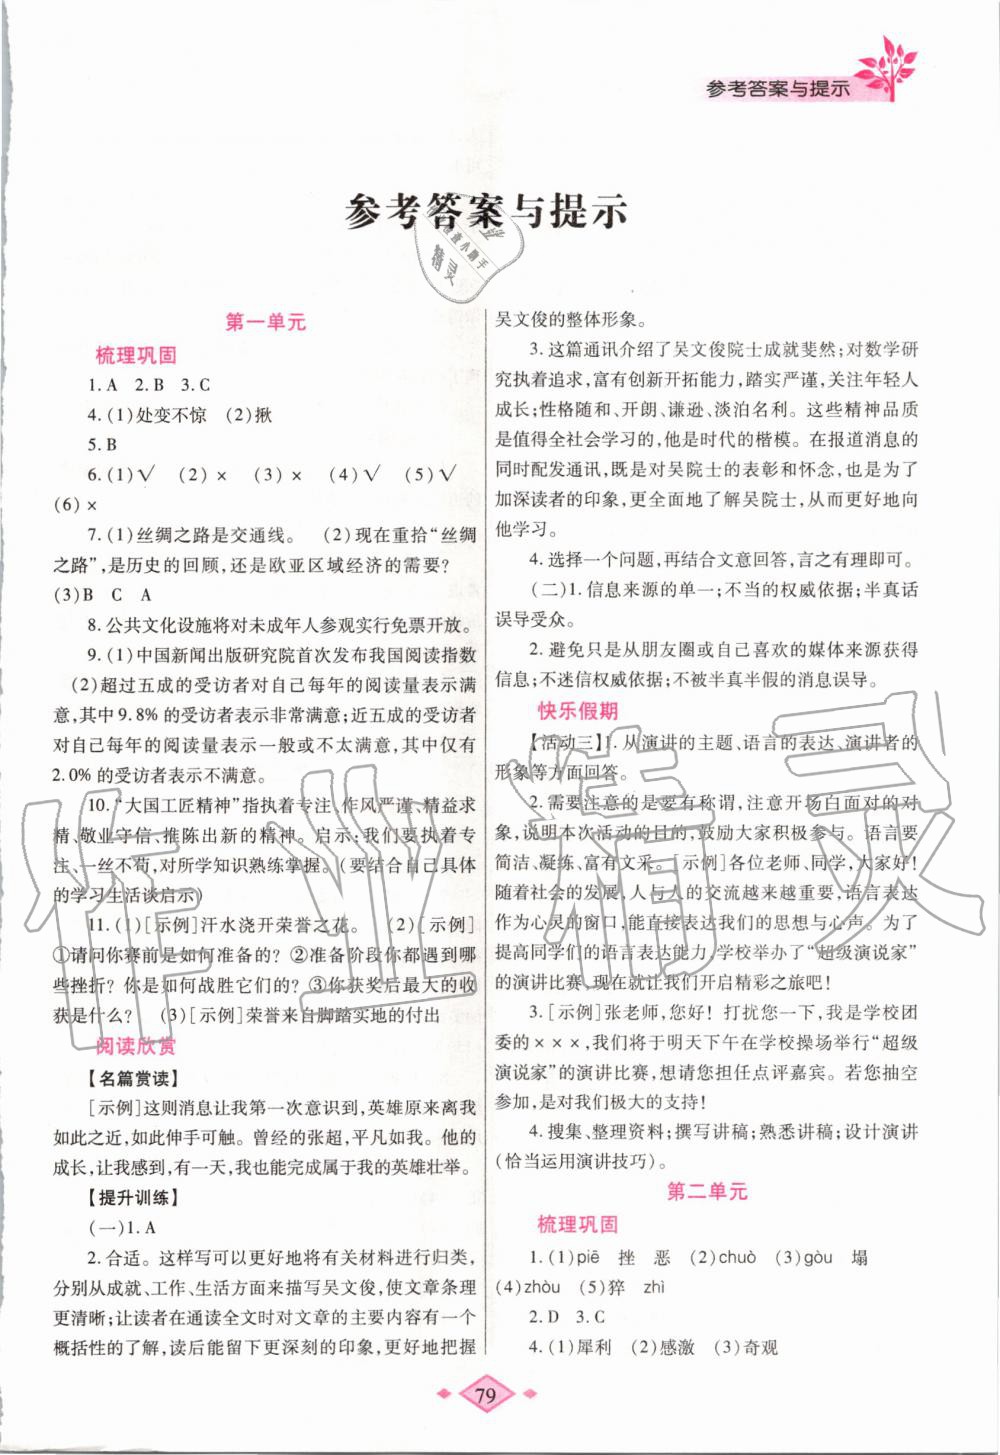 参考答案与提示
参考答案与提示
第一单元
梳理巩固
1.A  2.B  3.C
4.(1)处变不惊  (2)揪
5.B
6.(1)√  (2)×  (3)×  (4)√  (5)√
(6)×
7.(1)丝绸之路是交通线。  (2)现在重拾“丝绸
之路”,是历史的回顾,还是欧亚区域经济的需要?
(3)B  C  A
8.公共文化设施将对未成年人参观实行免票开放。
9.(1)中国新闻出版研究院首次发布我国阅读指数
(2)超过五成的受访者对自己每年的阅读量表示满
意,其中9.8%的受访者表示非常满意;近五成的受访者
对自己每年的阅读量表示一般或不太满意,其中仅有
2.0%的受访者表示不满意。
10.“大国工匠精神”指执着专注、作风严谨、精益求
精、敬业守信、推陈出新的精神。启示:我们要执着专
注、一丝不苟,对所学知识熟练掌握。(要结合自己具体
的学习生活谈启示)
11.(1)[示例]汗水浇开荣誉之花。  (2)[示例]
①请问你赛前是如何准备的? ②准备阶段你都遇到哪
些挫折? 你是如何战胜它们的? ③你获奖后最大的收
获是什么?  (3)[示例]荣誉来自脚踏实地的付出
阅读欣赏
【名篇赏读】
[示例]这则消息让我第一次意识到,英雄原来离我
如此之近,如此伸手可触。曾经的张超,平凡如我。他的
成长,让我感到,有一天,我也能完成属于我的英雄壮举。
【提升训练】
(一)1.A
2.合适。这样写可以更好地将有关材料进行归类,
分别从成就、工作、生活方面来描写吴文俊,使文章条理
更清晰;让读者在通读全文时对文章的主要内容有一个
概括性的了解,读后能留下更深刻的印象,更好地把握
吴文俊的整体形象。
3.这篇通讯介绍了吴文俊院士成就斐然;对数学研
究执着追求,富有创新开拓能力,踏实严谨,关注年轻人
成长;性格随和、开朗、谦逊、淡泊名利。这些精神品质
是值得全社会学习的,他是时代的楷模。在报道消息的
同时配发通讯,既是对吴院士的表彰和怀念,也是为了
加深读者的印象,更全面地了解吴院士,从而更好地向
他学习。
4.选择一个问题,再结合文意回答,言之有理即可。
(二)1.信息来源的单一;不当的权威依据;半真话
误导受众。
2.避免只是从朋友圈或自己喜欢的媒体来源获得
信息;不迷信权威依据;不被半真半假的消息误导。
快乐假期
【活动三】1.从演讲的主题、语言的表达、演讲者的
形象等方面回答。
2.需要注意的是要有称谓,注意开场白面对的对
象,说明本次活动的目的,鼓励大家积极参与。语言要
简洁、凝练、富有文采。[示例]各位老师、同学,大家好!
随着社会的发展,人与人的交流越来越重要,语言表达
作为心灵的窗口,能直接表达我们的思想与心声。为了
提高同学们的语言表达能力,学校举办了“超级演说家”
的演讲比赛,现在就让我们开启精彩之旅吧!
3.[示例]张老师,您好! 打扰您一下,我是学校团
委的×××,我们将于明天下午在学校操场举行“超级
演说家”的演讲比赛,想请您担任点评嘉宾。若您抽空
参加,是对我们极大的支持!
4.搜集、整理资料;撰写讲稿;熟悉讲稿;设计演讲
(恰当运用演讲技巧)。
第二单元
梳理巩固
1.(1)piē  挫  恶  (2)chuò  (3)gòu  塌
(4)zhòu  (5)猝  zhì
2.D  3.C
4.(1)犀利  (2)感激  (3)奇观
79
作业精灵